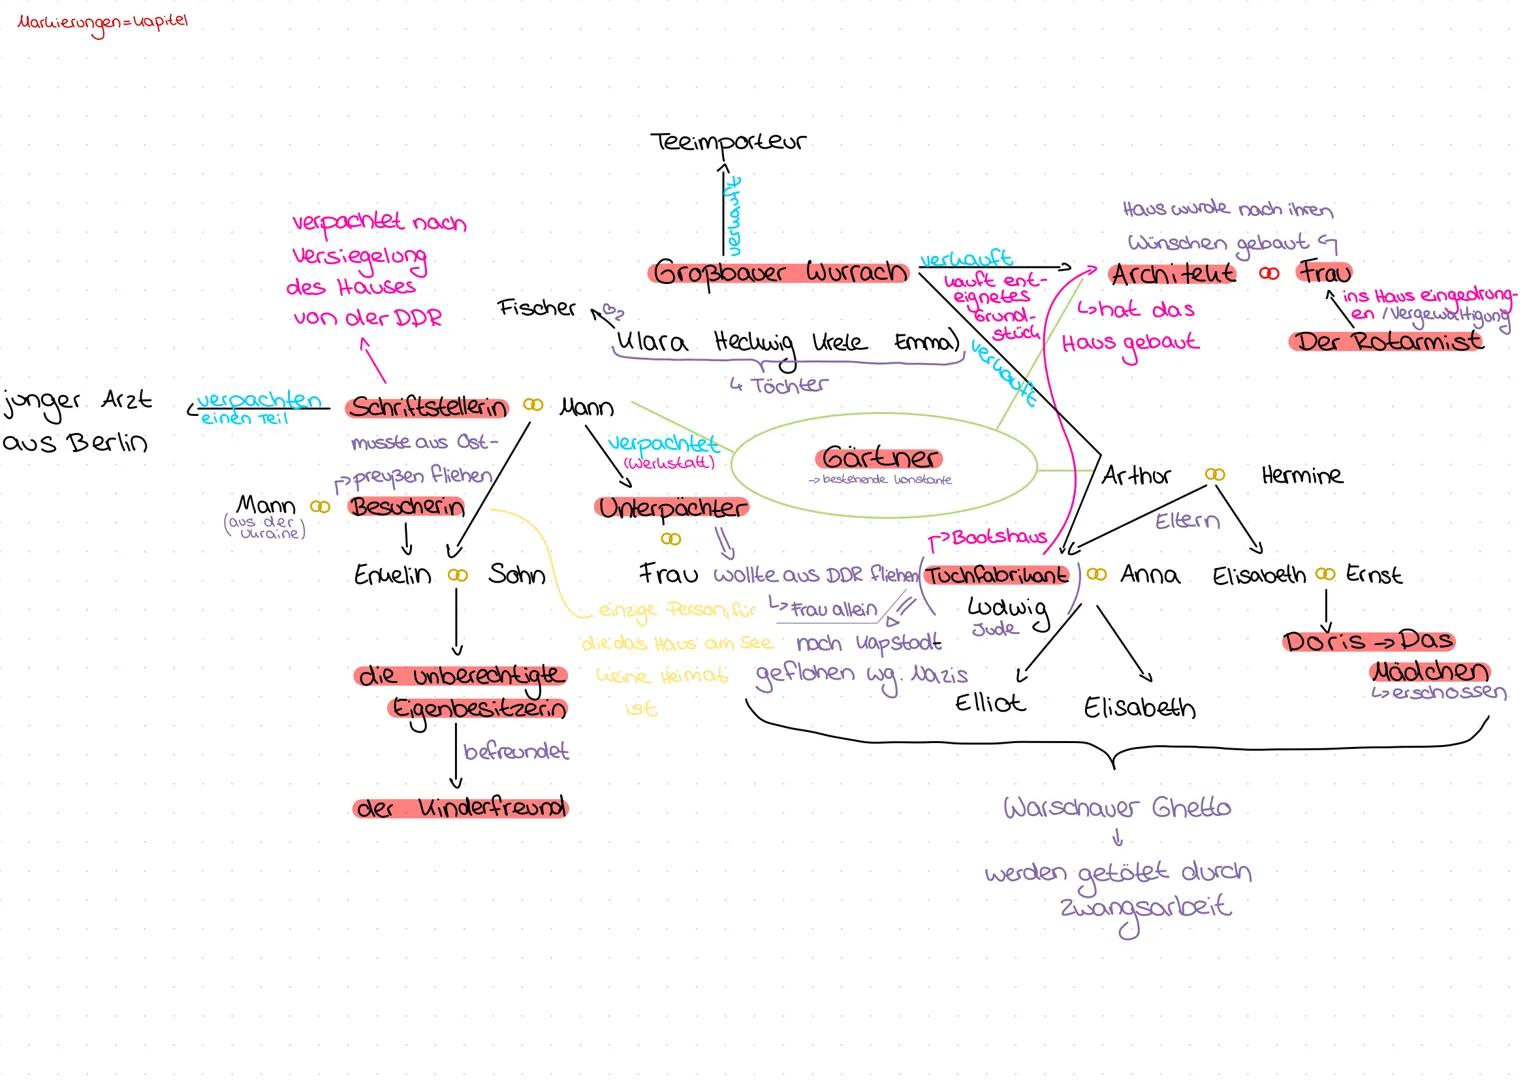 Markierungen = Kapitel
Teeimporteur
verkauft
verpachtet nach
Versiegelung
des Hauses
von der DDR
Haus wurde nach ihren
Wünschen gebaut
Großbauer Wurrach
verkauft
Architekt
Frau
kauft ent-
eignetes
Grund-
stück
ins Haus eingedrung-
en / Vergewaltigung
Fischer
hat das
Haus gebaut
Klara Hedwig Grete Emma)
Der Rotarmist
verkauft
4 Töchter
junger Arzt
aus Berlin
verpachten
einen Teil
Schriftstellerin
Mann
musste aus Ost-
preußen fliehen
verpachtet
(Werkstatt)
Gärtner
→ bestehende Konstante
Arthor
Hermine
Eltern
Mann
(aus der
Ukraine)
Besucherin
Unterpächter
Bootshaus
Enkelin
Sohn
Frau
wollte aus DDR fliehen
Frau allein
(Tuchfabrikant)
Ludwig
Jude
Anna
Elisabeth
Ernst
einzige Person, für
die das Haus am See
keine Heimat
ist
nach Kapstadt
geflohen wg. Nazis
Doris → Das
Mädchen
erschossen
die unberechtigte
Eigenbesitzerin
Elliot
Elisabeth
befreundet
der Kinderfreund
Warschauer Ghetto
werden getötet durch
Zwangsarbeit